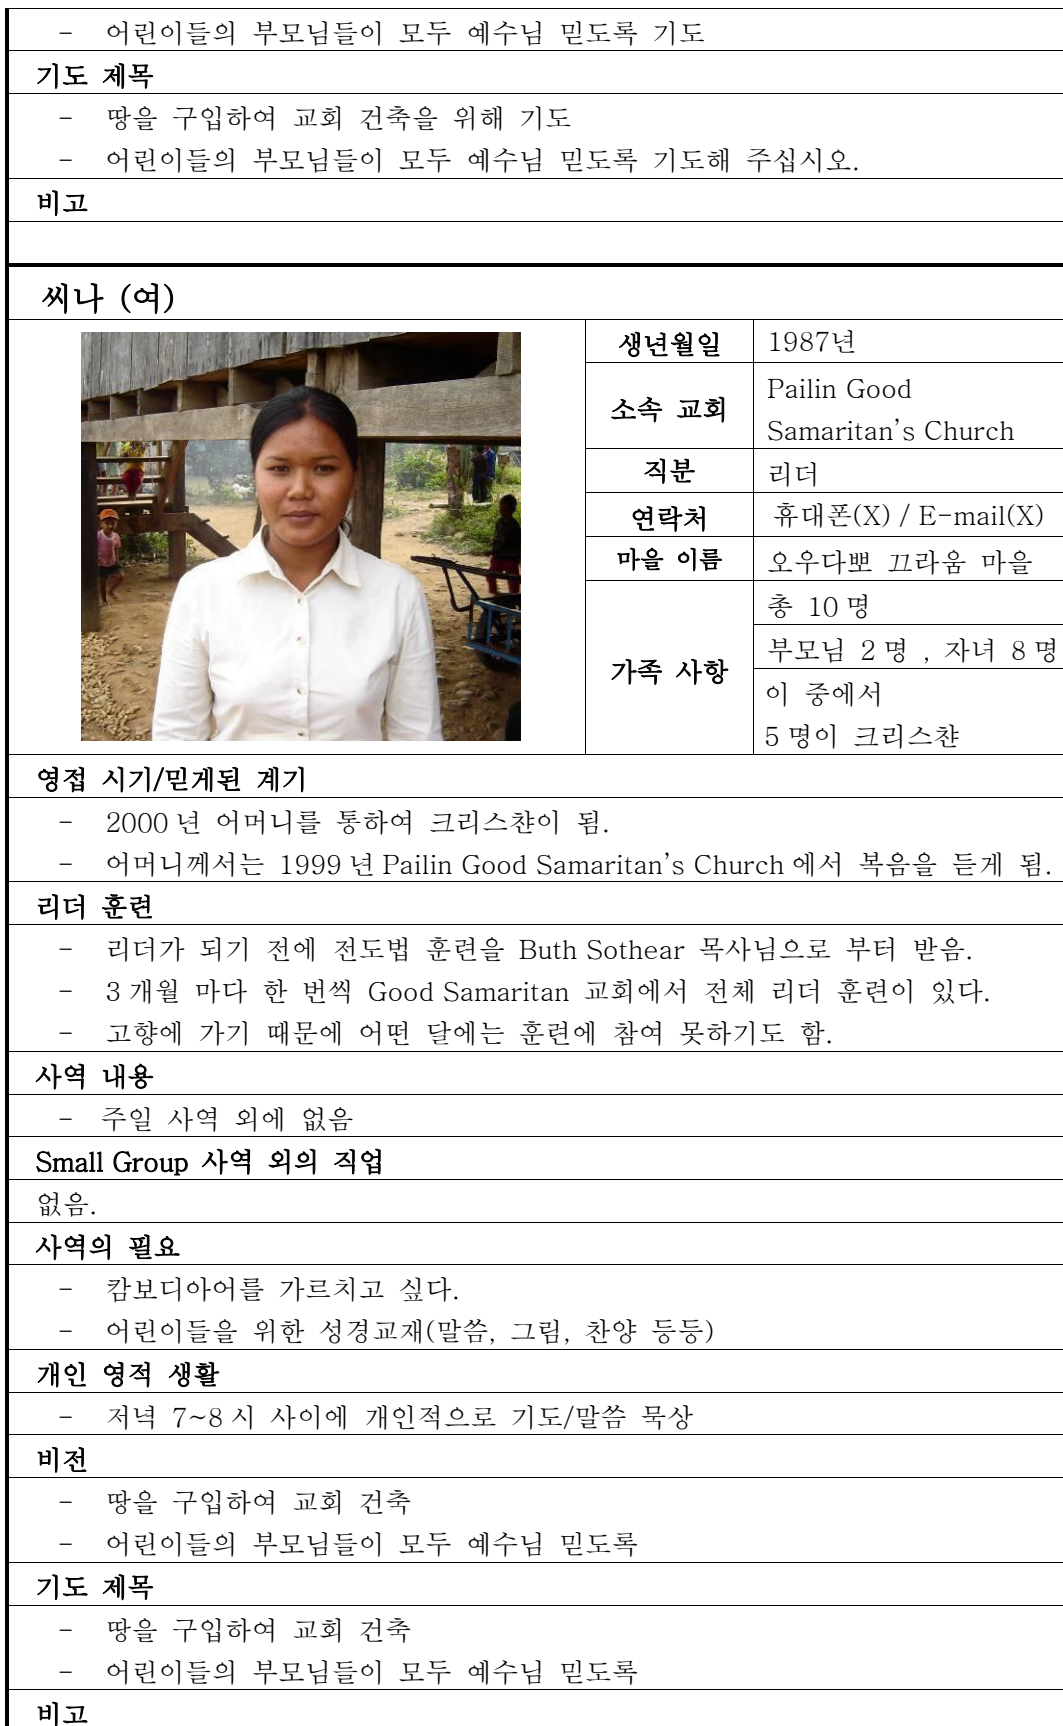 - 어린이들의 부모님들이 모두 예수님 믿도록 기도
기도 제목
- 땅을 구입하여 교회 건축을 위해 기도
- 어린이들의 부모님들이 모두 예수님 믿도록 기도해 주십시오.
비고
씨나 (여)
생년월일 1987년
소속 교회 Pailin Good
Samaritan's Church
직분 리더
연락처 휴대폰(X) / E-mail(X)
마을 이름 오우다뽀 끄라움 마을
가족 사항 총 10명
부모님 2명 , 자녀 8명
이 중에서
5명이 크리스챤
영접 시기/믿게된 계기
- 2000년 어머니를 통하여 크리스챤이 됨.
- 어머니께서는 1999년 Pailin Good Samaritan's Church에서 복음을 듣게 됨.
리더 훈련
- 리더가 되기 전에 전도법 훈련을 Buth Sothear 목사님으로 부터 받음.
- 3개월 마다 한 번씩 Good Samaritan 교회에서 전체 리더 훈련이 있다.
- 고향에 가기 때문에 어떤 달에는 훈련에 참여 못하기도 함.
사역 내용
- 주일 사역 외에 없음
Small Group 사역 외의 직업
없음.
사역의 필요
- 캄보디아어를 가르치고 싶다.
- 어린이들을 위한 성경교재(말씀, 그림, 찬양 등등)
개인 영적 생활
- 저녁 7~8시 사이에 개인적으로 기도/말씀 묵상
비전
- 땅을 구입하여 교회 건축
- 어린이들의 부모님들이 모두 예수님 믿도록
기도 제목
- 땅을 구입하여 교회 건축
- 어린이들의 부모님들이 모두 예수님 믿도록
비고